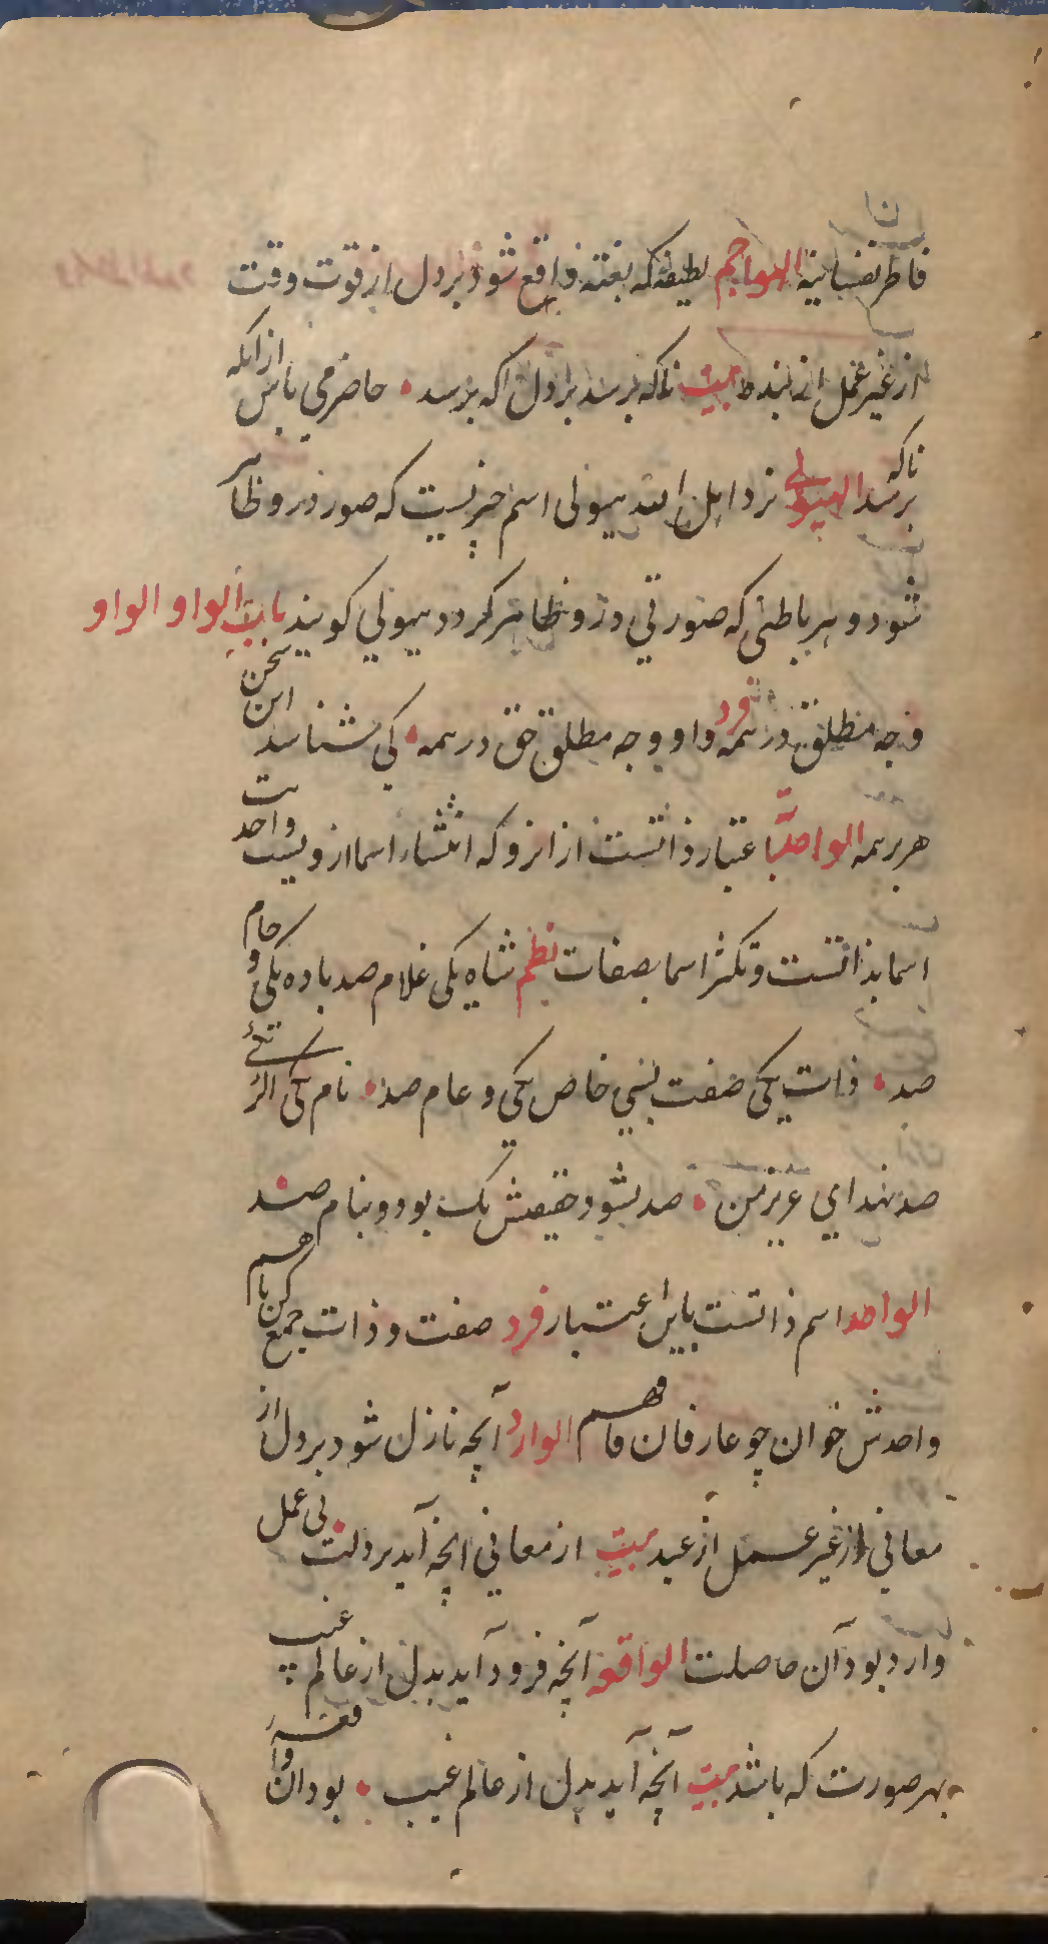 فاطر نفسانیة الهواجم لطیفه که بغته واقع شود بر دل از قوت وقت
از غیر عمل از بنده بیت ناکه برسد بر دل اکه برسد حاضر می باش از انکه
ناکه برسد الهیولی نزد اهل الله هیولی اسم چیزیست که صور در و ظاهر
شود و هر باطنی که صورتی در و ظاهر کردد هیولی کویند باب الواو الواو
وجه مطلق در همه فرد واو وجه مطلق حق در همه کی شناسد این سخن
هر برهمه الواحدیة باعتبار ذاتست از انرو که انتشاء اسما ازویست واحدیت
اسما بذاتست و تکثر اسما بصفات نظم شاه یکی غلام صد باده یکی و جام
صد ذات یکی صفت بسی خاص یکی و عام صد نام یکی اگر تویی
صد بنهد ای عزیز من صد بشود حقیقتش یک بود و بنام صد
الواحد اسم ذاتست باین اعتبار فرد صفت و ذات جمع کن با هم
واحدش خوان چو عارفان فافهم الوارد آنچه نازل شود بر دل از
معانی از غیر عمل از عبد بیت از معانی انچه آید بر دلت بی عمل
وارد بود آن حاصلت الواقعه آنچه فرود آید بدل از عالم غیب
بهر صورت که باشد بیت آنچه آید بدل از عالم غیب بود آن واقعه